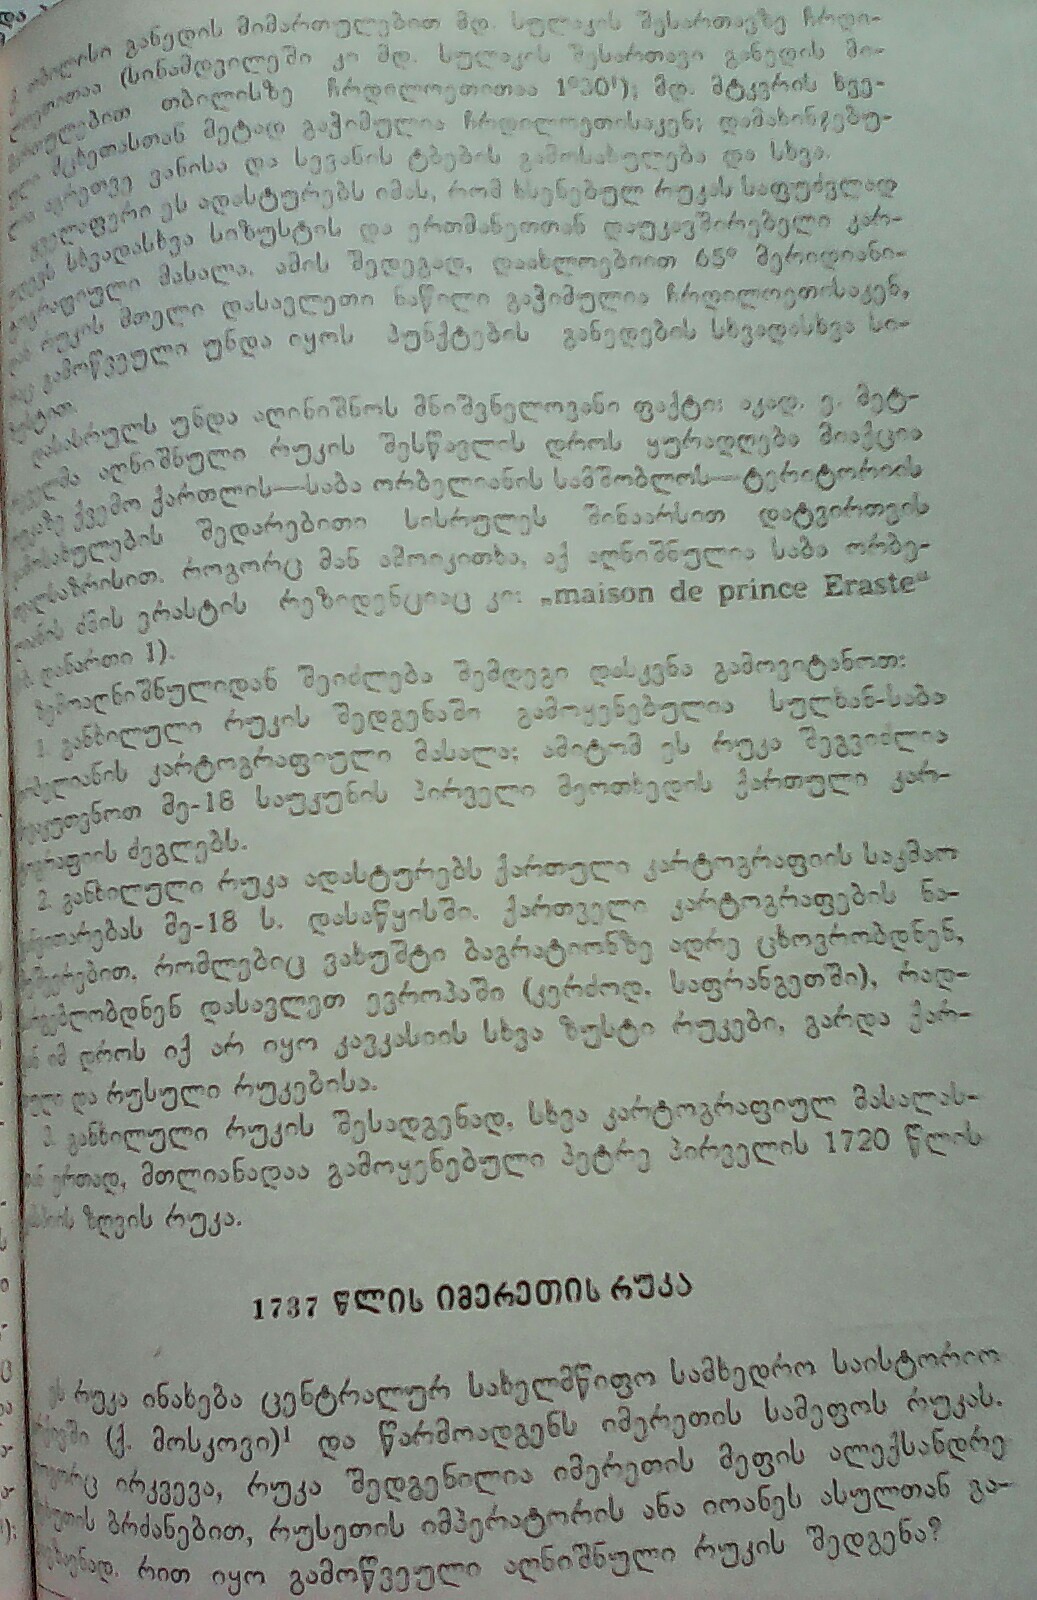 თბილისი განედის მიმართულებით მდ. სულაკის შესართავზე ჩრდი-
ლოეთითაა (სინამდვილეში კი მდ. სულაკის შესართავი განედის მი-
მართულებით თბილისზე ჩრდილოეთითაა 1°30'); მდ. მტკვრის ხევ-
მცხეთასთან მეტად გაჭიმულია ჩრდილოეთისაკენ; დამახინჯებუ-
ლია აგრეთვე ვანისა და სევანის ტბების გამოსახულება და სხვა.
ყველაფერი ეს ადასტურებს იმას, რომ ხსენებულ რუკას საფუძვლად
უდევს სხვადასხვა სიზუსტის და ერთმანეთთან დაუკავშირებელი კარ-
ტოგრაფიული მასალა. ამის შედეგად, დაახლოებით 65° მერიდიანი-
დან რუკის მთელი დასავლეთი ნაწილი გაჭიმულია ჩრდილოეთისაკენ,
რაც გამოწვეული უნდა იყოს პუნქტების განედების სხვადასხვა სი-
ზუსტით.
დასასრულს უნდა აღინიშნოს მნიშვნელოვანი ფაქტი: აკად. ე. მეტ-
რეველმა აღნიშნული რუკის შესწავლის დროს ყურადღება მიაქცია
რუკაზე ქვემო ქართლის—საბა ორბელიანის სამშობლოს—ტერიტორიის
გამოსახულების შედარებითი სისრულეს შინაარსით დატვირთვის
თვალსაზრისით. როგორც მან ამოიკითხა, აქ აღნიშნულია საბა ორბე-
ლიანის ძმის ერასტის რეზიდენციაც კი: „maison de prince Eraste“
დანართი 1).
ზემოაღნიშნულიდან შეიძლება შემდეგი დასკვნა გამოვიტანოთ:
1. განხილული რუკის შედგენაში გამოყენებულია სულხან-საბა
ორბელიანის კარტოგრაფიული მასალა; ამიტომ ეს რუკა შეგვიძლია
მივაკუთვნოთ მე-18 საუკუნის პირველი მეოთხედის ქართული კარ-
ტოგრაფიის ძეგლებს.
2. განხილული რუკა ადასტურებს ქართული კარტოგრაფიის საკმაო
განვითარებას მე-18 ს. დასაწყისში. ქართველი კარტოგრაფების ნა-
შრომებით, რომლებიც ვახუშტი ბაგრატიონზე ადრე ცხოვრობდნენ,
სარგებლობდნენ დასავლეთ ევროპაში (კერძოდ, საფრანგეთში), რად-
გან იმ დროს იქ არ იყო კავკასიის სხვა ზუსტი რუკები, გარდა ქარ-
თული და რუსული რუკებისა.
3. განხილული რუკის შესადგენად, სხვა კარტოგრაფიულ მასალას-
თან ერთად, მთლიანადაა გამოყენებული პეტრე პირველის 1720 წლის
კასპიის ზღვის რუკა.
1737 წლის იმერეთის რუკა
ეს რუკა ინახება ცენტრალურ სახელმწიფო სამხედრო საისტორიო
არქივში (ქ. მოსკოვი)¹ და წარმოადგენს იმერეთის სამეფოს რუკას.
როგორც ირკვევა, რუკა შედგენილია იმერეთის მეფის ალექსანდრე
ბრძანებით, რუსეთის იმპერატორის ანა იოანეს ასულთან გა-
საგზავნად. რით იყო გამოწვეული აღნიშნული რუკის შედგენა?